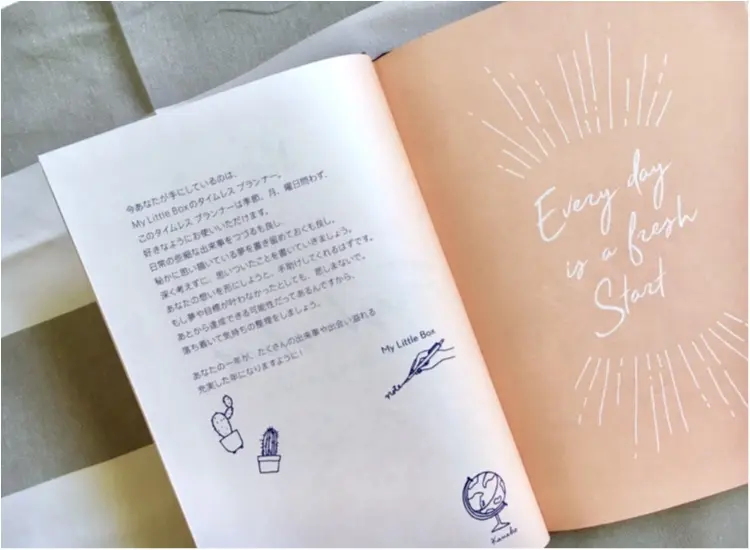 今あなたが手にしているのは、
My Little Boxのタイムレス プランナー。
このタイムレス プランナーは季節、月、曜日問わず、
好きなようにお使いいただけます。
日常の些細な出来事をつづるも良し、
秘かに思い描いている夢を書き留めておくも良し。
深く考えずに、思いついたことを書いていきましょう。
あなたの想いを形にしようと、手助けしてくれるはずです。
もし夢や目標が叶わなかったとしても、悲しまないで。
あとから達成できる可能性だってあるんですから、
落ち着いて気持ちの整理をしましょう。
あなたの一年が、たくさんの出来事や出会い溢れる
充実した年になりますように!
My Little Box
note
Kanako
Every day
is a fresh
Start